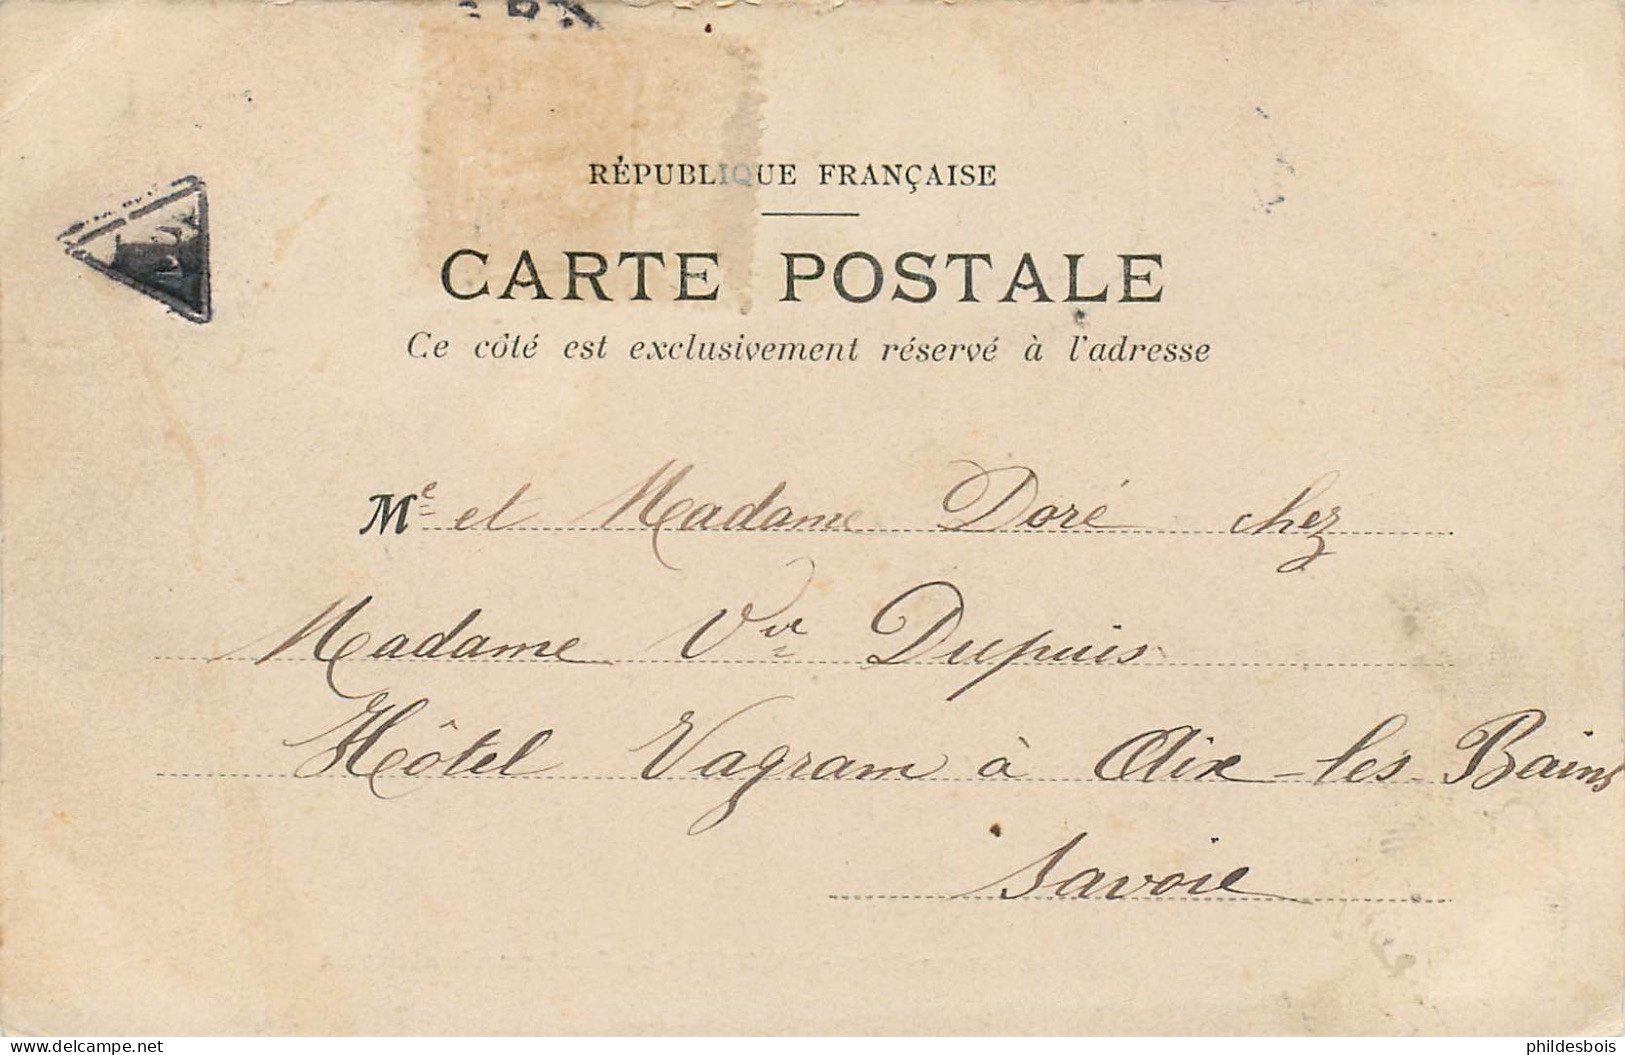 RÉPUBLIQUE FRANÇAISE
CARTE POSTALE
Ce côté est exclusivement réservé à l'adresse
Me et Madame Doré chez
Madame Vve Dupuis
Hôtel Vagram à Aix-les-Bains
Savoie
phildesbois
delcampe.net